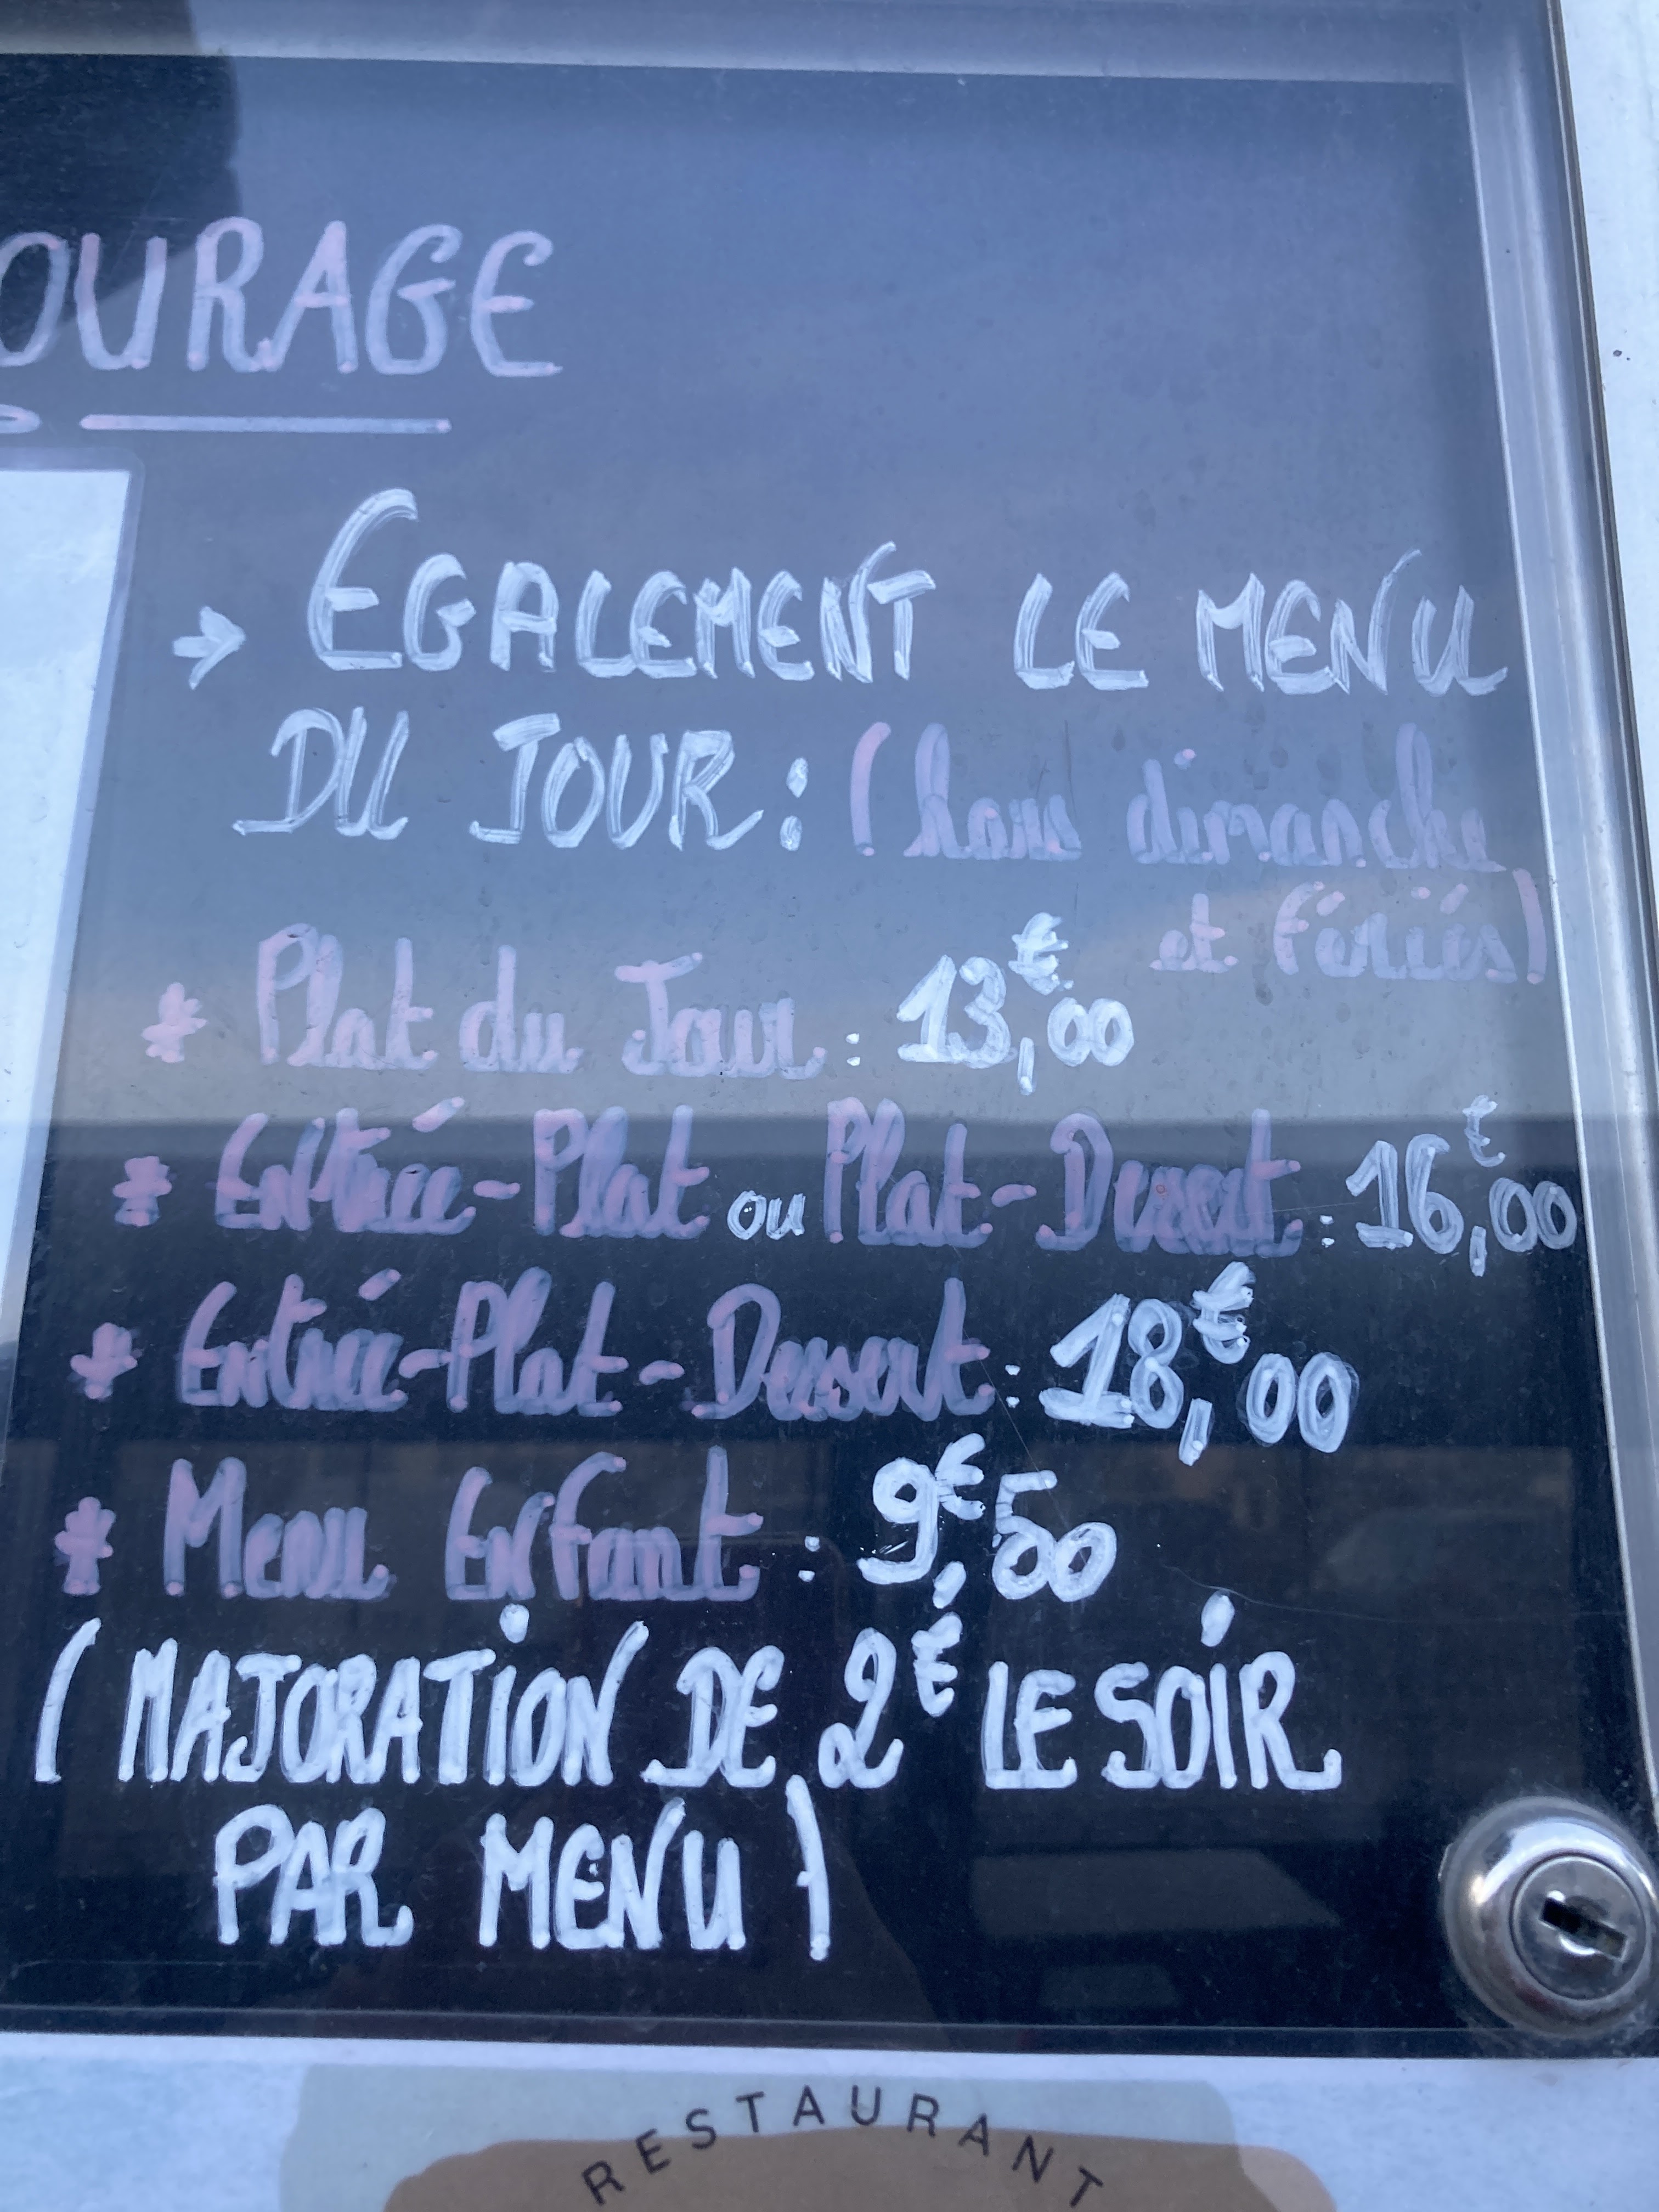 OURAGE
→ EGALEMENT LE MENU
DU JOUR : (hors dimanche
et fériés)
* Plat du Jour : 13€,00
* Entrée-Plat ou Plat-Dessert : 16€,00
* Entrée-Plat-Dessert : 18€,00
* Menu Enfant : 9€,50
(MAJORATION DE 2€ LE SOIR
PAR MENU)
RESTAURANT